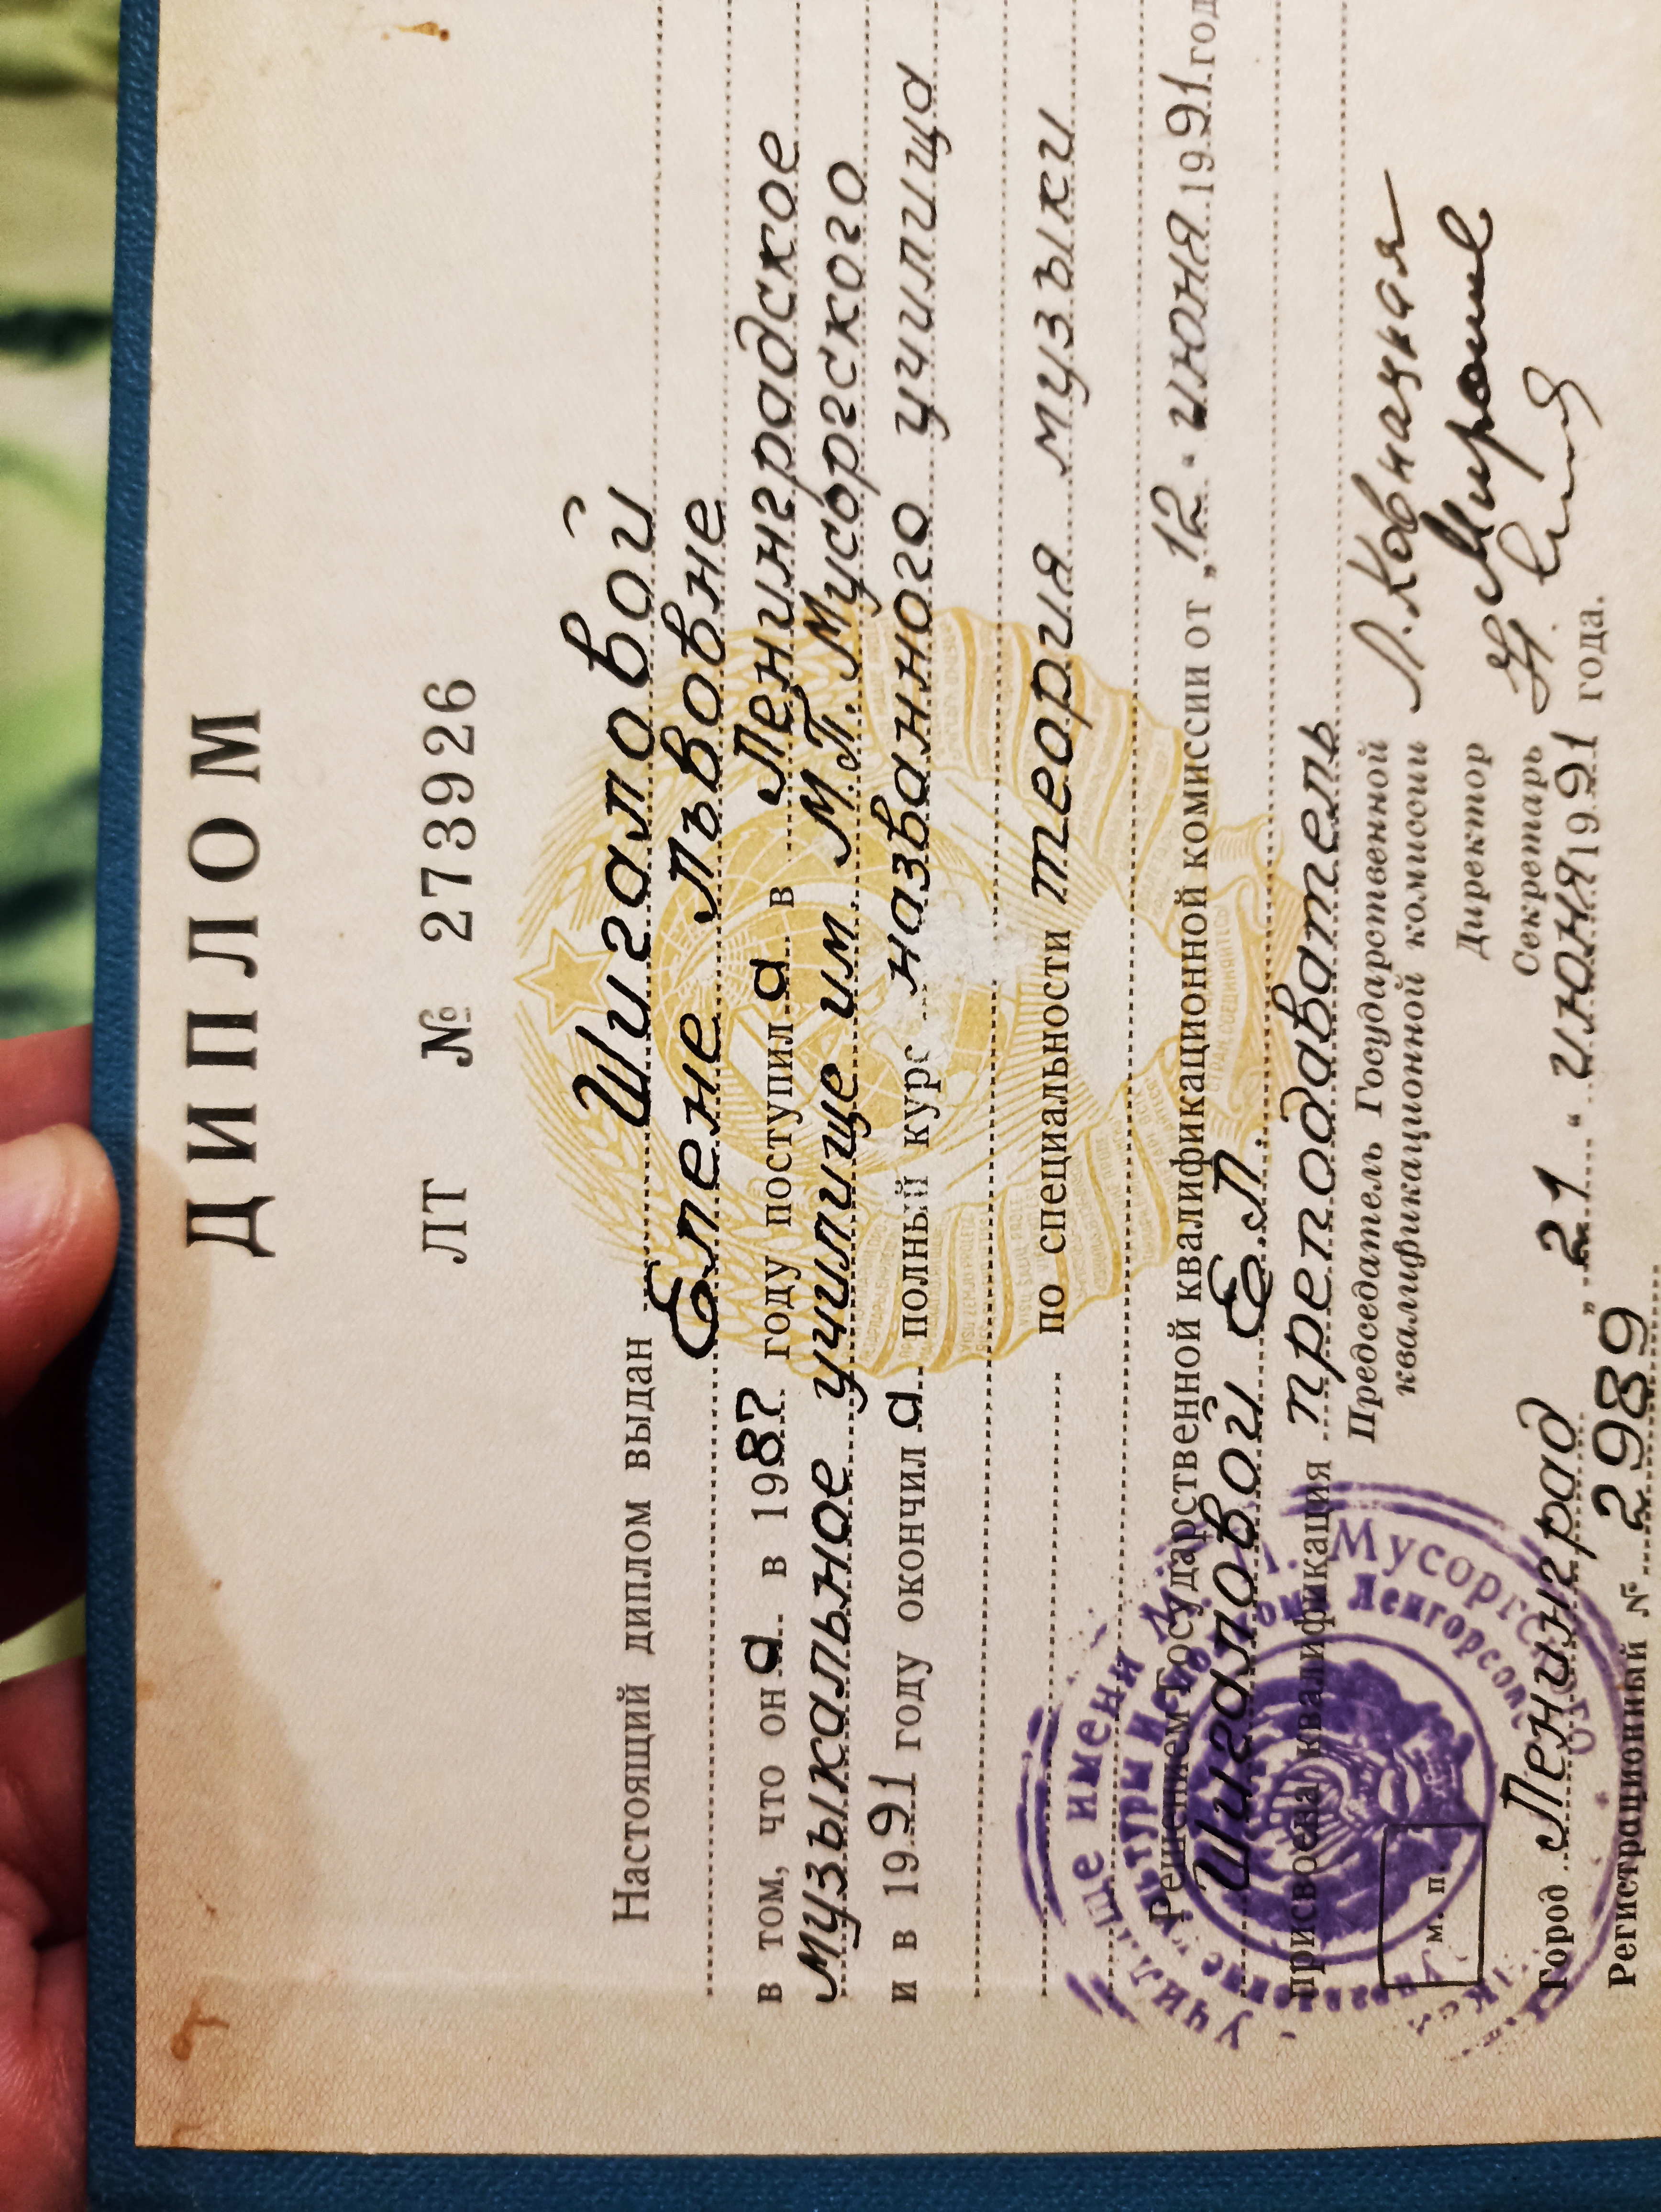 ДИПЛОМ
ЛТ № 273926
Настоящий диплом выдан Шигаловой
Елене Львовне
в том, что он а в 1987 году поступил а в Ленинградское
музыкальное училище им М.П. Мусоргского
и в 1991 году окончил а полный курс названного училища
по специальности теория музыки
Решением Государственной квалификационной комиссии от „12“ июня 1991 год
Шигаловой Е.Л.
присвоена квалификация преподаватель
Председатель Государственной
квалификационной комиссии Л. Ковнацкая
Директор
Секретарь
М. П.
Город Ленинград „21“ июня 1991 года.
Регистрационный № 2989